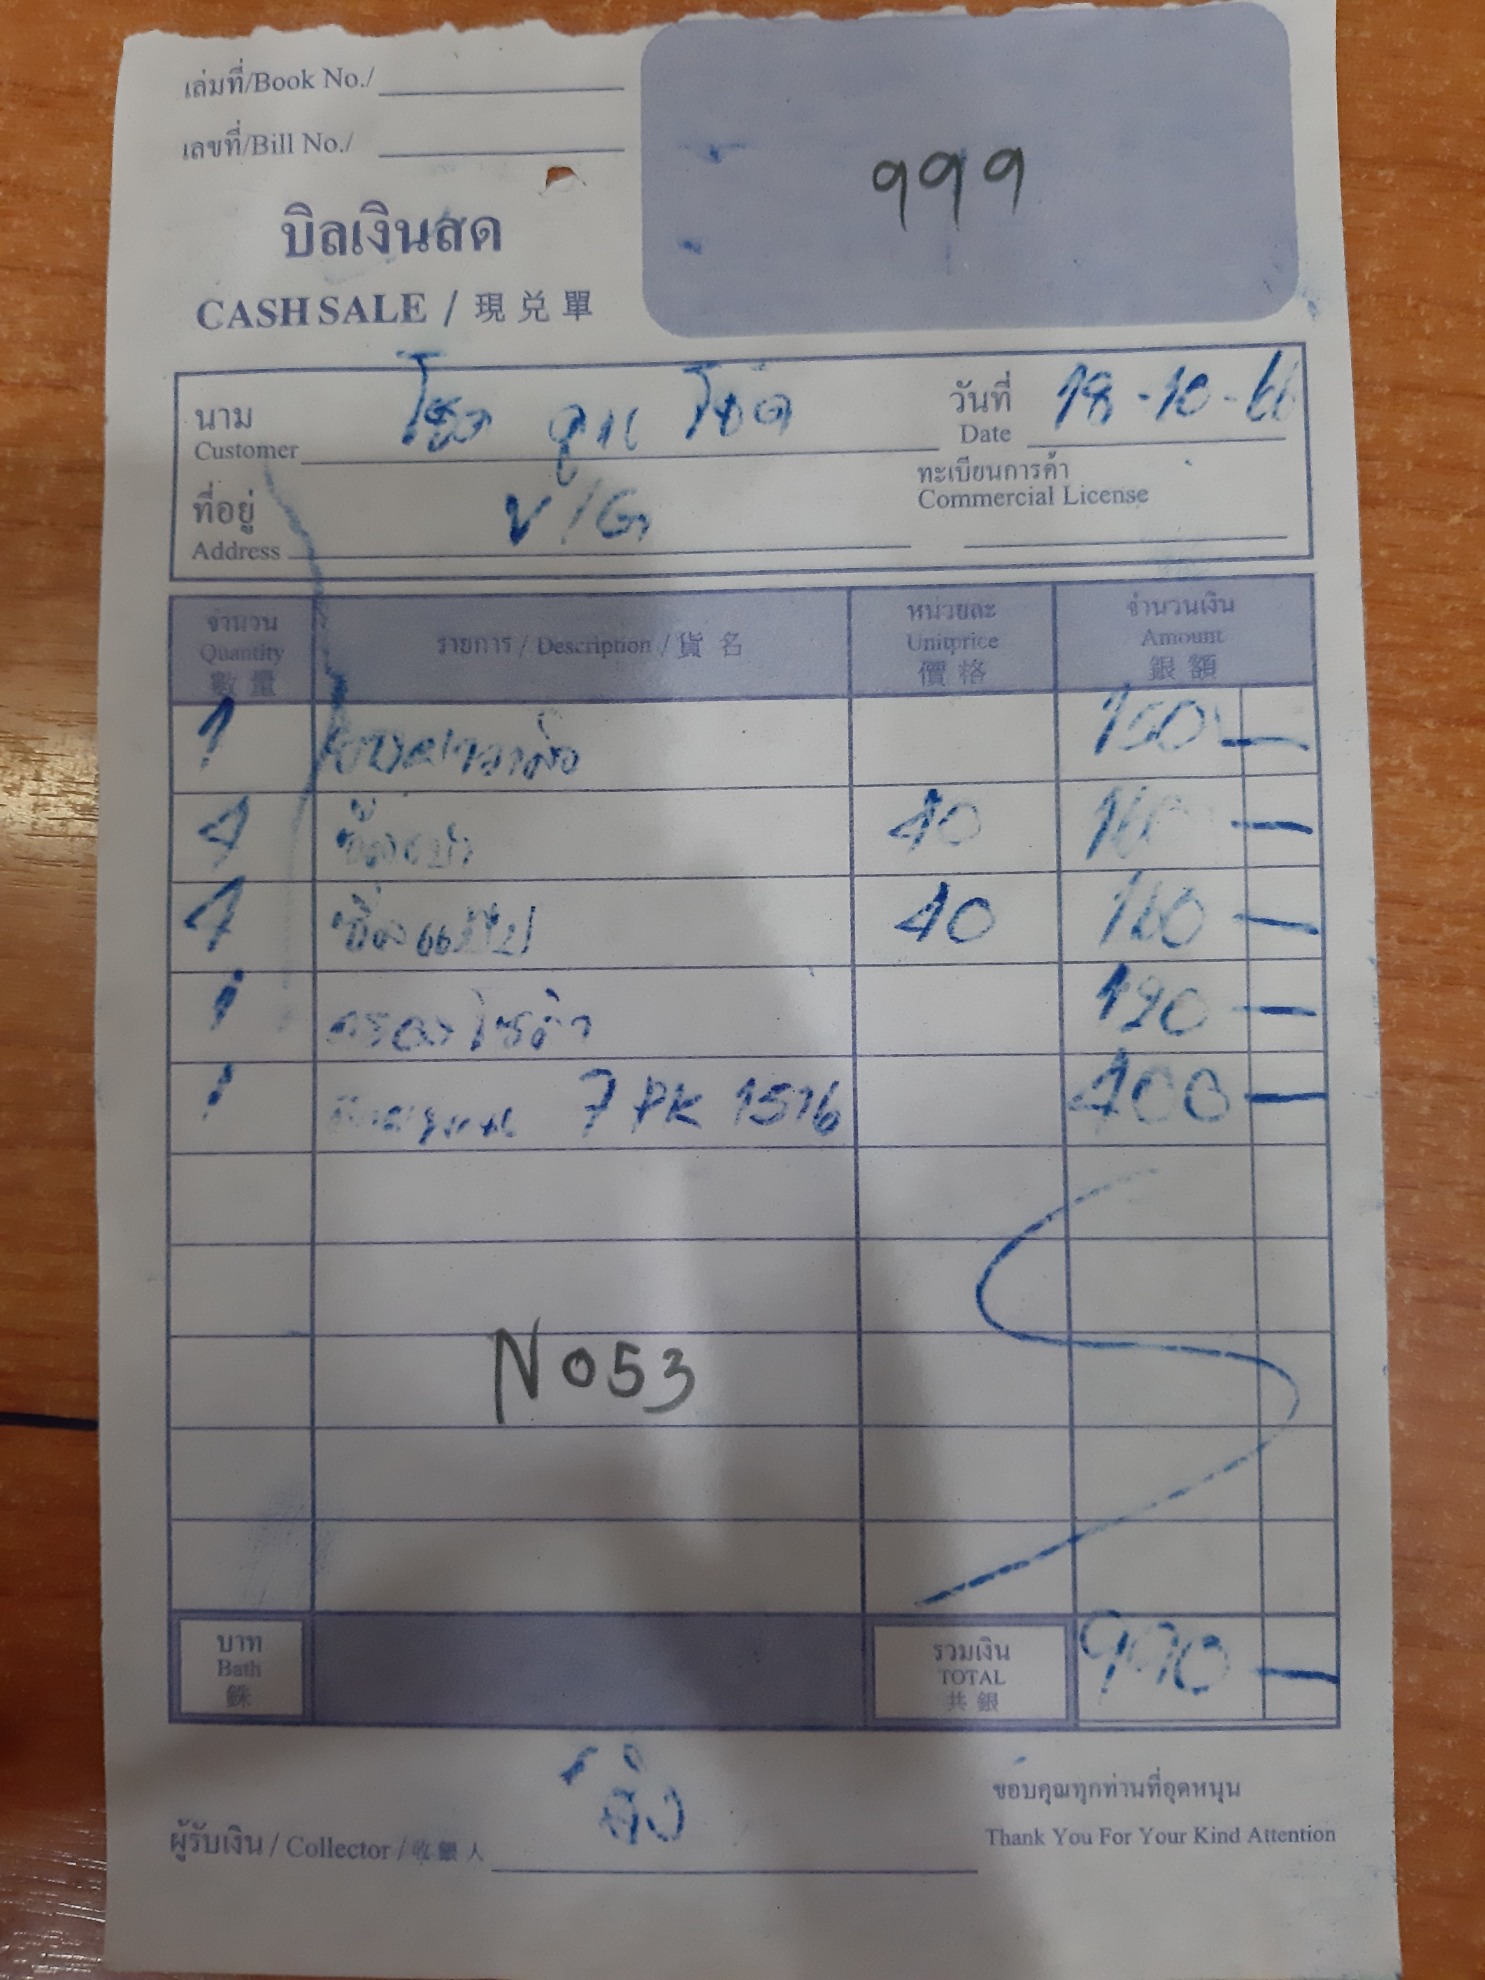 เล่มที่/Book No./
เลขที่/Bill No./
999
บิลเงินสด
CASH SALE / 現兑單
นาม
Customer
โชค คูน โชค
วันที่
Date
18-10-66
ที่อยู่
Address
V/G
ทะเบียนการค้า
Commercial License
จำนวน
Quantity
數量
รายการ / Description / 貨名
หน่วยละ
Unitprice
價格
จำนวนเงิน
Amount
銀額
1 150 —
4 40 160 —
4 40 160 —
1 กรองโซล่า 120 —
1 7PK 1516 400 —
N053
บาท
Bath
銖
รวมเงิน
TOTAL
共銀
990 —
ผู้รับเงิน / Collector / 收銀人
ขอบคุณทุกท่านที่อุดหนุน
Thank You For Your Kind Attention